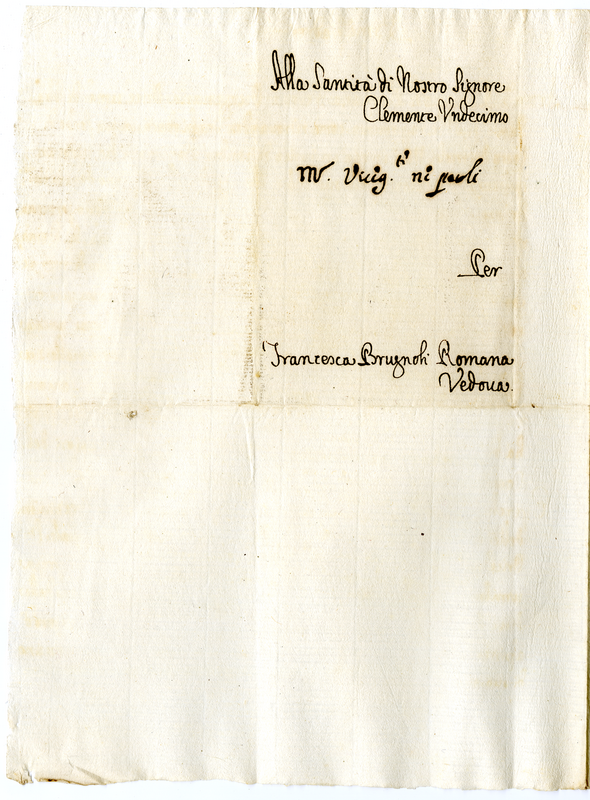 Alla Santità di Nostro Signore
Clemente Vndecimo
Per
Francesca Brugnoli Romana
Vedoua.